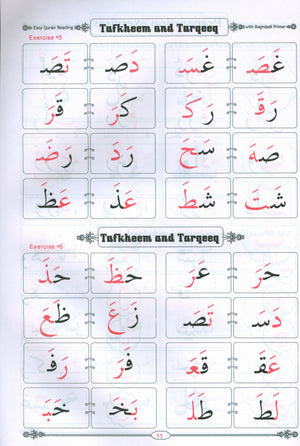 Easy Quran Reading
Tafkheem and Tarqeeq
with Baghdadi Primer
Exercise ^5
غَصَ غَسَ دَصَ تَصَ
رَقَ رَكَ كَرَ قَرَ
صَهَ سَحَ رَدَ رَضَ
شَتَ شَطَ عَذَ عَظَ
Tafkheem and Tarqeeq
Exercise ^6
حَرَ عَرَ حَظَ حَذَ
دَسَ تَصَ زَعَ ظَعَ
عَقَ قَعَ فَرَ رَفَ
لَطَ طَلَ بَخَ خَبَ
11